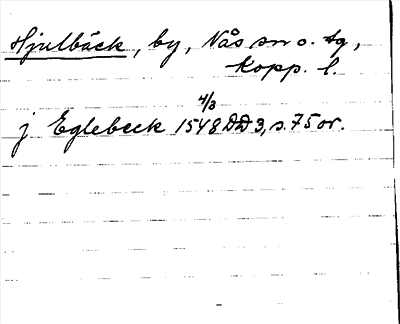 Hjulbäck, by, Nås sn o. tg,
Kopp. l.
4/3
j Eglebeck 1548 DD 3, s. 75 or.